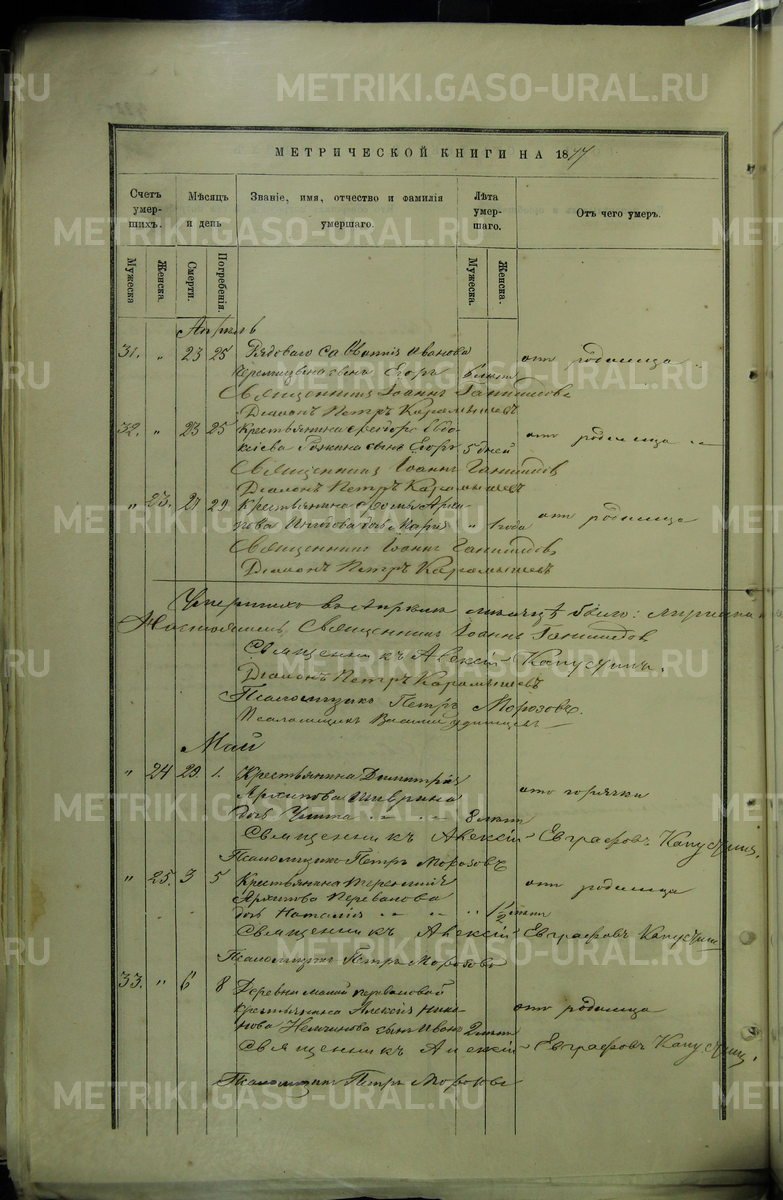 METRIKI.GASO-URAL.RU
МЕТРИЧЕСКОЙ КНИГИ НА 1877
Счетъ умер-шихъ.
Мѣсяцъ и день
Званіе, имя, отчество и фамилія умершаго.
Лѣта умер-шаго.
Отъ чего умеръ.
Мужеска
Женска.
Смерти.
Погребенія.
Мужеска.
Женска.
Апрѣль
31. " 23 25 Рядоваго Савватія Иванова
сынъ Егоръ 6 лѣтъ отъ родимца
Священникъ Іоаннъ
Діаконъ Петръ Карамышевъ
32. " 23 25 Крестьянина Ѳеодора Евдо-
кіева сынъ Егоръ 5 дней отъ родимца
Священникъ Іоаннъ
Діаконъ Петръ Карамышевъ
" 23. 27 29 Крестьянина
дочь Марія " 1 года отъ родимца
Священникъ Іоаннъ
Діаконъ Петръ Карамышевъ
Умершихъ въ Апрѣлѣ мѣсяцѣ было:
Настоятель Священникъ Іоаннъ
Священникъ Алексій Капустинъ.
Діаконъ Петръ Карамышевъ
Псаломщикъ Петръ Морозовъ.
Псаломщикъ Василій
Май
" 24 29 1. Крестьянина Димитрія
Архипова
дочь 8 лѣтъ отъ горячки
Священникъ Алексій Евграфовъ Капустинъ.
Псаломщикъ Петръ Морозовъ
" 25. 3 5 Крестьянина Терентія
Архипова Перевалова
дочь Наталія " 1/2 отъ родимца
Священникъ Алексій Евграфовъ Капустин
Псаломщикъ Петръ Морозовъ
33. " 6 8 Деревни Малой Переваловой
крестьянина Алексія Ника-
нова сынъ Иванъ 2 лѣтъ отъ родимца
Священникъ Алексій Евграфовъ Капустин.
Псаломщикъ Петръ Морозовъ